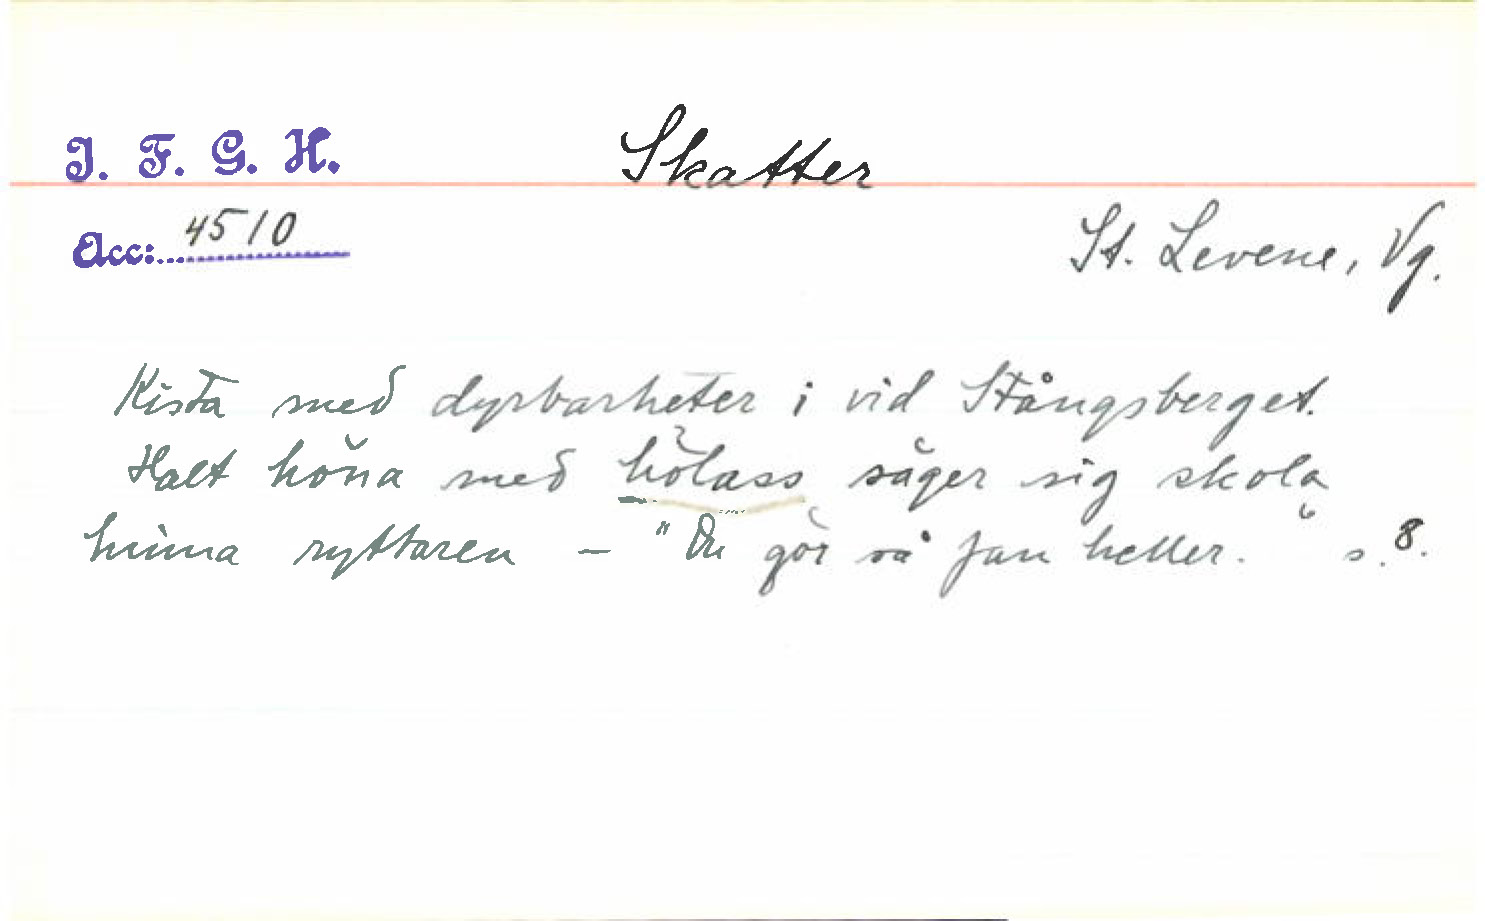 I. F. G. H.
Skatter
Acc: 4510
St. Levene, Vg.
Kista med dyrbarheter i vid Stångsberget.
Halt höna med hölass säger sig skola
hinna ryttaren – "Du gör så fan heller." s. 8.